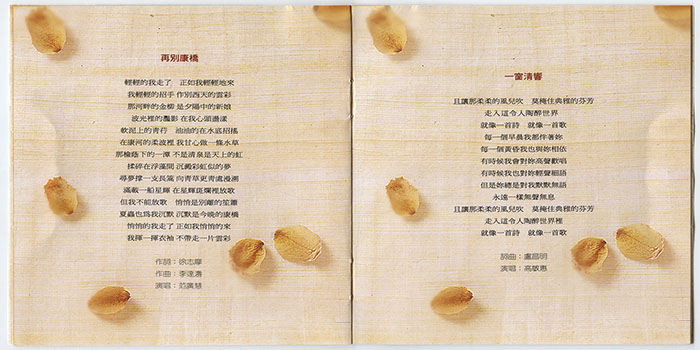 再別康橋
輕輕的我走了 正如我輕輕地來
我輕輕的招手 作別西天的雲彩
那河畔的金柳 是夕陽中的新娘
波光裡的豔影 在我心頭盪漾
軟泥上的青荇 油油的在水底招搖
在康河的柔波裡 我甘心做一條水草
那榆蔭下的一潭 不是清泉是天上的虹
揉碎在浮藻間 沉澱彩虹似的夢
尋夢撐一支長篙 向青草更青處漫溯
滿載一船星輝 在星輝斑斕裡放歌
但我不能放歌 悄悄是別離的笙簫
夏蟲也為我沉默 沉默是今晚的康橋
悄悄的我走了 正如我悄悄的來
我揮一揮衣袖 不帶走一片雲彩
作詞：徐志摩
作曲：李達濤
演唱：范廣慧
一窗清響
且讓那柔柔的風兒吹 莫掩住典雅的芬芳
走入這令人陶醉世界
就像一首詩 就像一首歌
每一個早晨我都伴著妳
每一個黃昏我也與妳相依
有時候我會對妳高聲歡唱
有時候我也對妳輕聲細語
但是妳總是對我默默無語
永遠一樣無聲無息
且讓那柔柔的風兒吹 莫掩住典雅的芬芳
走入這令人陶醉世界裡
就像一首詩 就像一首歌
詞曲：盧昌明
演唱：高敏惠